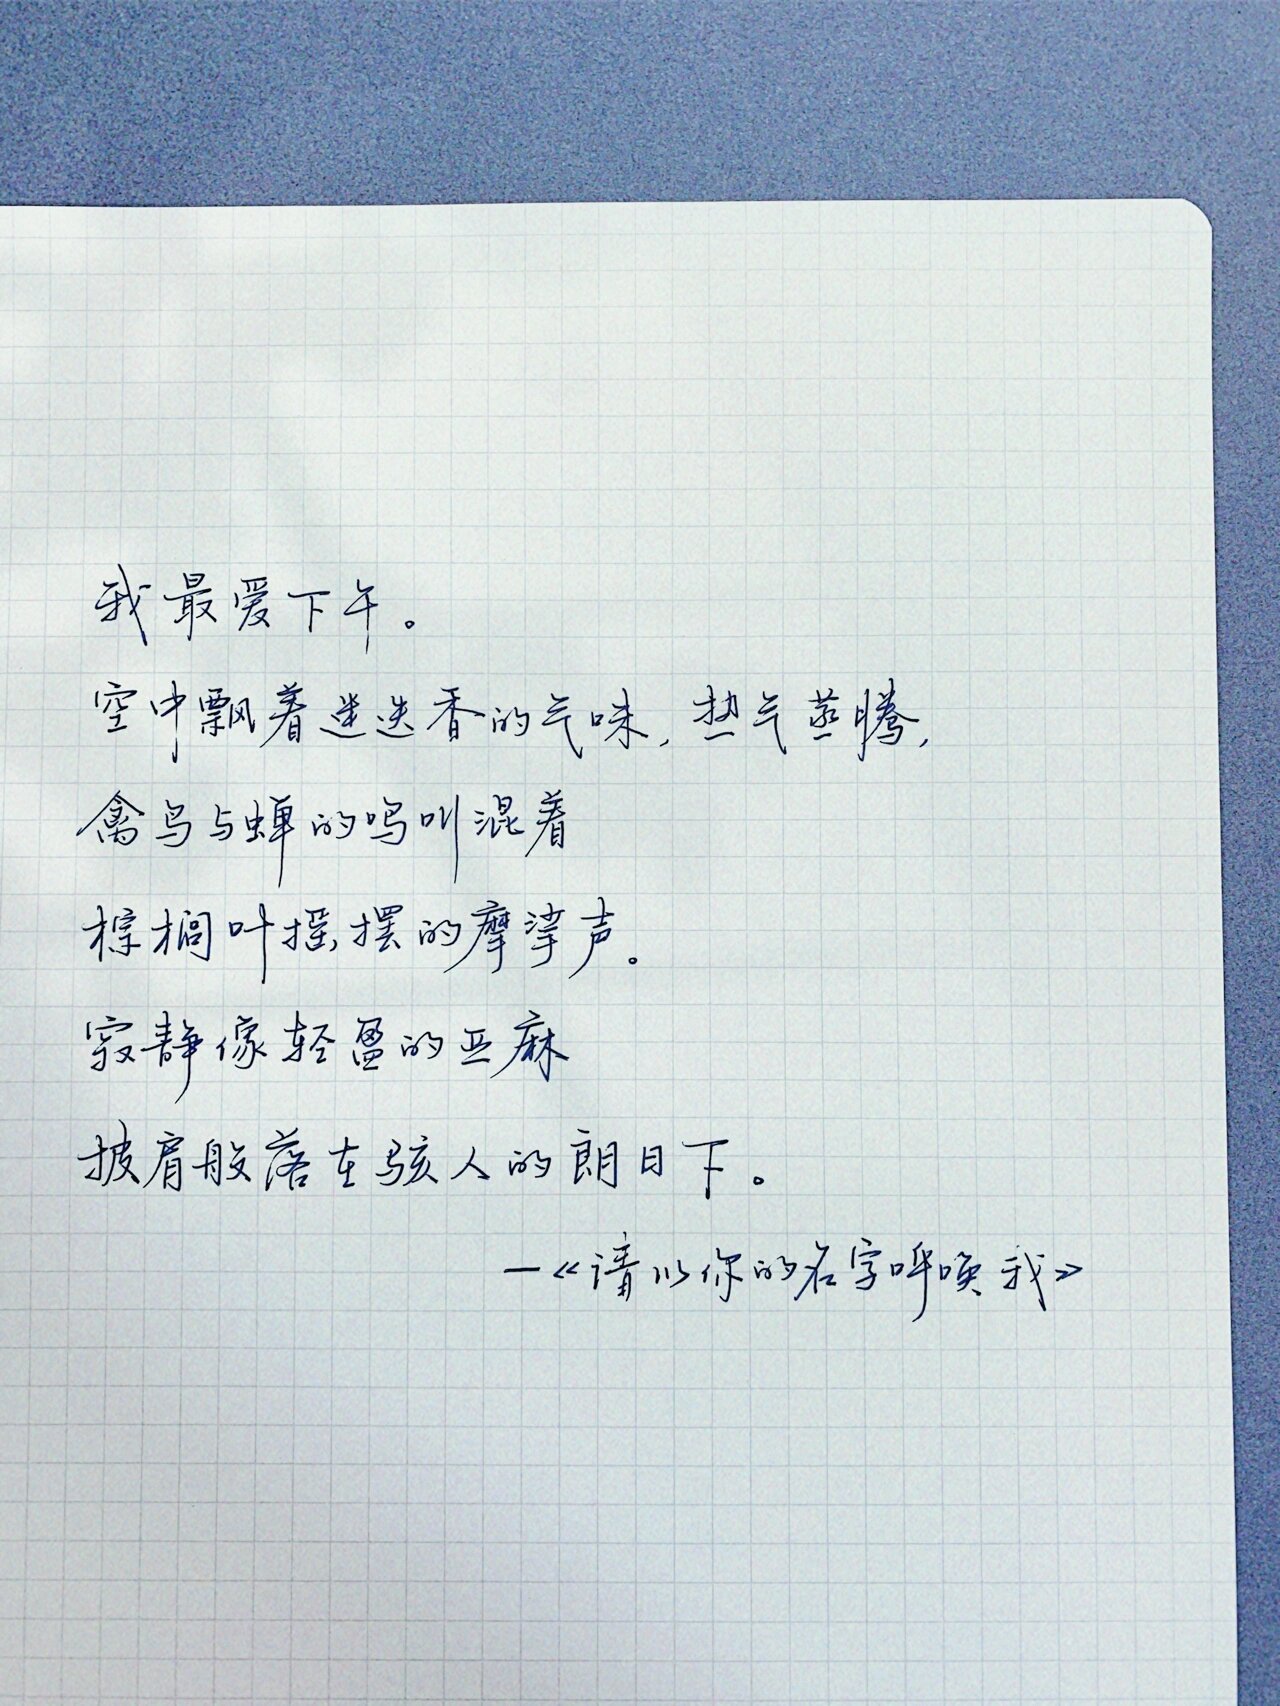 我最爱下午。
空中飘着迷迭香的气味,热气蒸腾,
禽鸟与蝉的鸣叫混着
棕榈叶摇摆的摩挲声。
寂静像轻盈的亚麻
披肩般落在骇人的朗日下。
—《请以你的名字呼唤我》